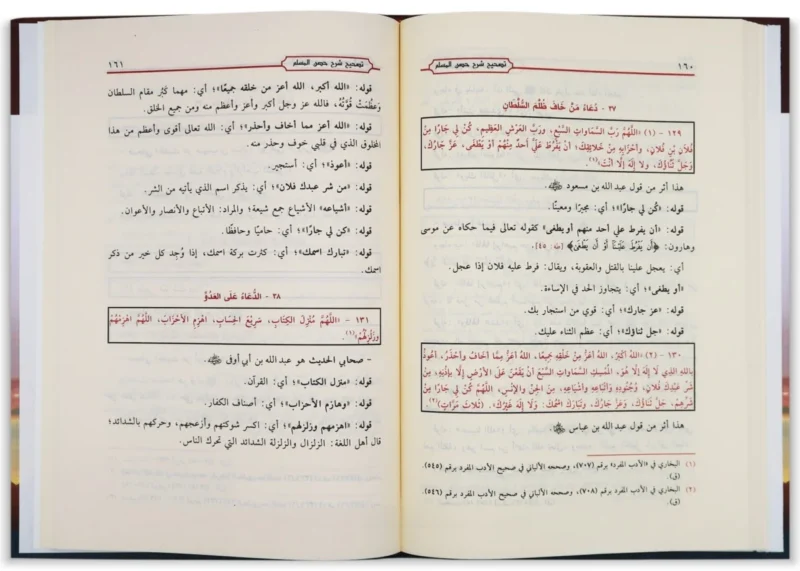 تصحيح شرح حصن المسلم
١٦٠
٣٧ - دُعَاءُ مَنْ خَافَ ظُلْمَ السُّلْطَانِ
١٢٩ - (١) «اللَّهُمَّ رَبَّ السَّمَاوَاتِ السَّبْعِ، وَرَبَّ العَرْشِ العَظِيمِ، كُنْ لِي جَارًا مِنْ
فُلَانِ بْنِ فُلَانٍ، وَأَحْزَابِهِ مِنْ خَلَائِقِكَ؛ أَنْ يَفْرُطَ عَلَيَّ أَحَدٌ مِنْهُمْ أَوْ يَطْغَى، عَزَّ جَارُكَ،
وَجَلَّ ثَنَاؤُكَ، وَلا إِلَهَ إِلَّا أَنْتَ»(١).
هذا أثر من قول عبد الله بن مسعود ﵁.
قوله: «كُن لي جارًا»؛ أي: مجيرًا ومعينًا.
قوله: «أن يفرط علي أحد منهم أو يطغى» كقوله تعالى فيما حكاه عن موسى
وهارون: ﴿أَن يَفْرُطَ عَلَيْنَآ أَوْ أَن يَطْغَىٰ﴾ [طه: ٤٥].
أي: يعجل علينا بالقتل والعقوبة، ويقال: فرط عليه فلان إذا عجل.
«أو يطغى»؛ أي: يتجاوز الحد في الإساءة.
قوله: «عز جارك»؛ أي: قوي من استجار بك.
قوله: «جل ثناؤك»؛ أي: عظم الثناء عليك.
١٣٠ - (٢) «اللهُ أَكْبَرُ، اللهُ أَعَزُّ مِنْ خَلْقِهِ جَمِيعًا، اللهُ أَعَزُّ مِمَّا أَخَافُ وَأَحْذَرُ، أَعُوذُ
بِاللهِ الَّذِي لَا إِلَهَ إِلَّا هُوَ، المُمْسِكِ السَّمَاوَاتِ السَّبْعَ أَنْ يَقَعْنَ عَلَى الأَرْضِ إِلَّا بِإِذْنِهِ، مِنْ
شَرِّ عَبْدِكَ فُلَانٍ، وَجُنُودِهِ وَأَتْبَاعِهِ وَأَشْيَاعِهِ، مِنَ الجِنِّ وَالإِنْسِ، اللَّهُمَّ كُنْ لِي جَارًا مِنْ
شَرِّهِمْ، جَلَّ ثَنَاؤُكَ، وَعَزَّ جَارُكَ، وَتَبَارَكَ اسْمُكَ، وَلَا إِلَهَ غَيْرُكَ». (ثَلَاثَ مَرَّاتٍ)(٢).
هذا أثر من قول عبد الله بن عباس ﵁.
(١) البخاري في «الأدب المفرد» برقم (٧٠٧)، وصححه الألباني في صحيح الأدب المفرد برقم (٥٤٥)
(ق).
(٢) البخاري في «الأدب المفرد» برقم (٧٠٨)، وصححه الألباني في صحيح الأدب المفرد برقم (٥٤٦)
(ق).
تصحيح شرح حصن المسلم
١٦١
قوله: «الله أكبر، الله أعز من خلقه جميعًا»؛ أي: مهما كَثُر مقام السلطان
وَعَظُمَتْ قُوَّتُهُ، فالله عز وجل أكبر وأعز وأعظم منه ومن جميع الخلق.
قوله: «الله أعز مما أخاف وأحذر»؛ أي: الله تعالى أقوى وأعظم من هذا
المخلوق الذي في قلبي خوف وحذر منه.
قوله: «أعوذ»؛ أي: أستجير.
قوله: «من شر عبدك فلان»؛ أي: يذكر اسم الذي يأتيه من الشر.
قوله: «أشياعه» الأشياع جمع شيعة؛ والمراد: الأتباع والأنصار والأعوان.
قوله: «كن لي جارًا»؛ أي: حاميًا وحافظًا.
قوله: «تبارك اسمك»؛ أي: كثرت بركة اسمك، إذا وُجِد كل خير من ذكر
اسمك.
٣٨ - الدُّعَاءُ عَلَى العَدُوِّ
١٣١ - «اللَّهُمَّ مُنْزِلَ الكِتَابِ، سَرِيعَ الحِسَابِ، اهْزِمِ الأَحْزَابَ، اللَّهُمَّ اهْزِمْهُمْ
وَزَلْزِلْهُمْ»(١).
- صحابي الحديث هو عبد الله بن أبي أوفى ﵁.
قوله: «منزل الكتاب»؛ أي: القرآن.
قوله: «وهازم الأحزاب»؛ أي: أصناف الكفار.
قوله: «اهزمهم وزلزلهم»؛ أي: اكسر شوكتهم وأزعجهم، وحركهم بالشدائد؛
قال أهل اللغة: الزلزال والزلزلة الشدائد التي تحرك الناس.